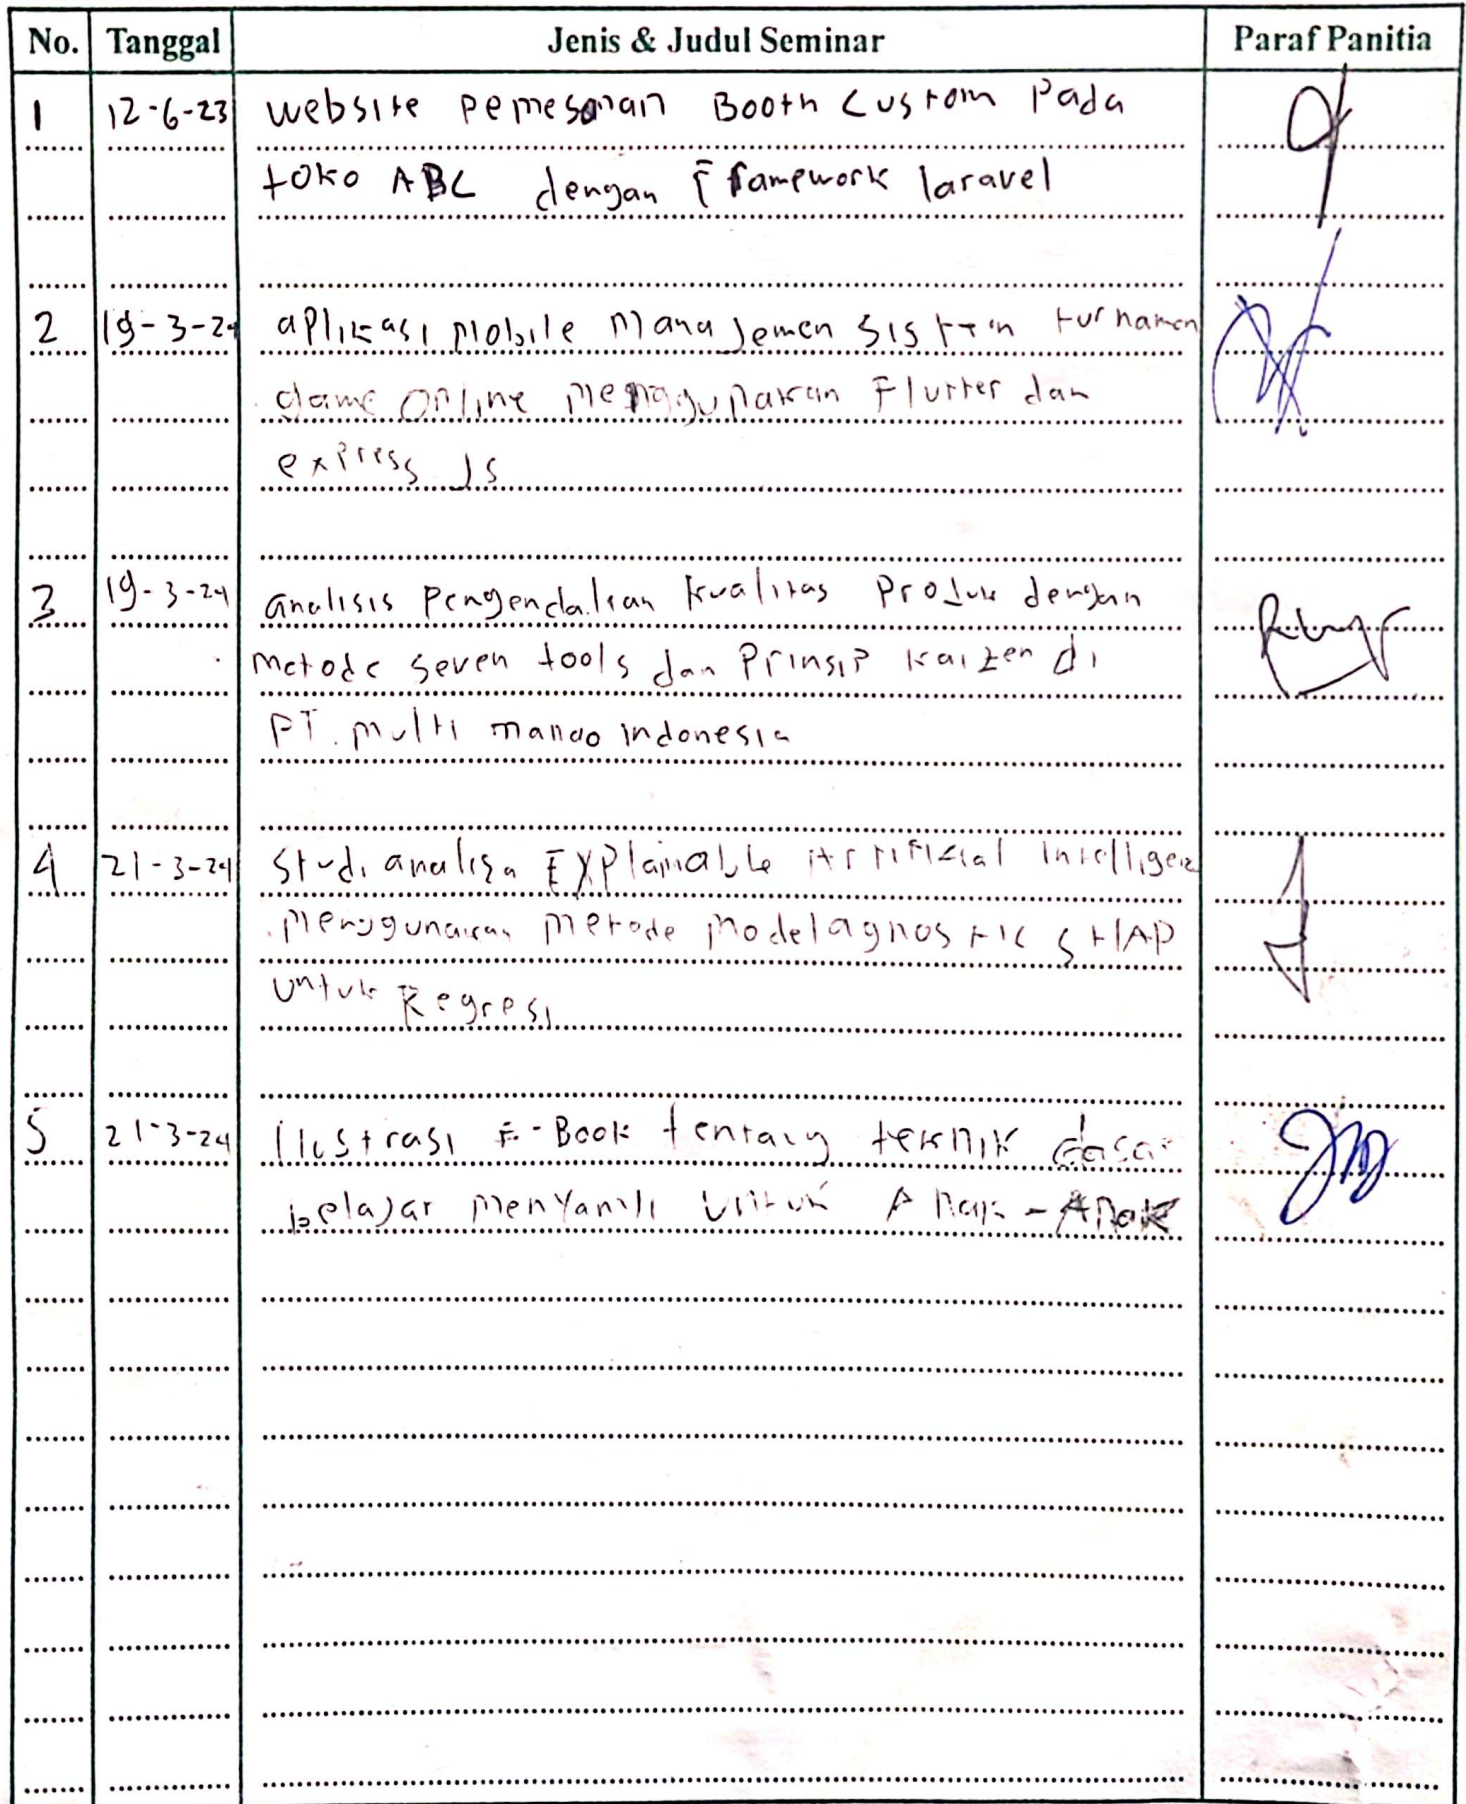 No. Tanggal Jenis & Judul Seminar Paraf Panitia
1 12-6-23 website pemesanan Booth custom Pada
toko ABC dengan Framework laravel
2 19-3-24 aplikasi mobile manajemen sistem turnamen
game online menggunakan Flutter dan
express JS
3 19-3-24 analisis pengendalian kualitas Produk dengan
metode seven tools dan Prinsip kaizen di
PT. multi indonesia
4 21-3-24 Studi analisa EXPlainable Artificial Intelligence
menggunakan metode modelagnostik SHAP
untuk Regresi
5 21-3-24 Ilustrasi E-Book tentang teknik dasar
belajar menyanyi untuk Anak-Anak